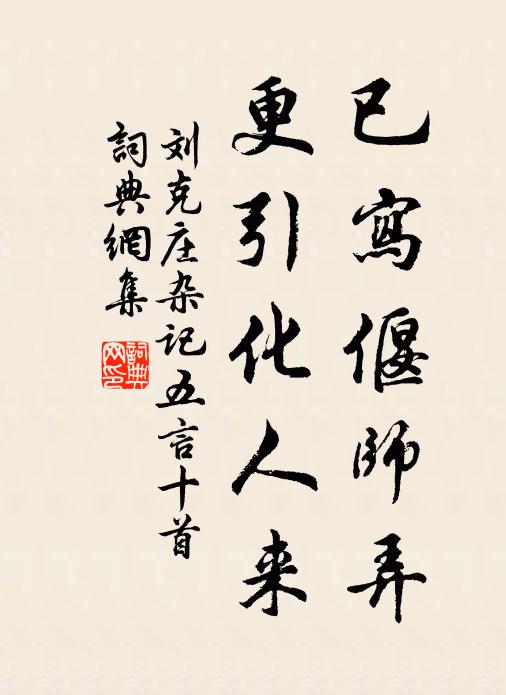 已寫偃師弄
更引化人来
刘克庄杂记五言十首
詞典網集
詞典網印